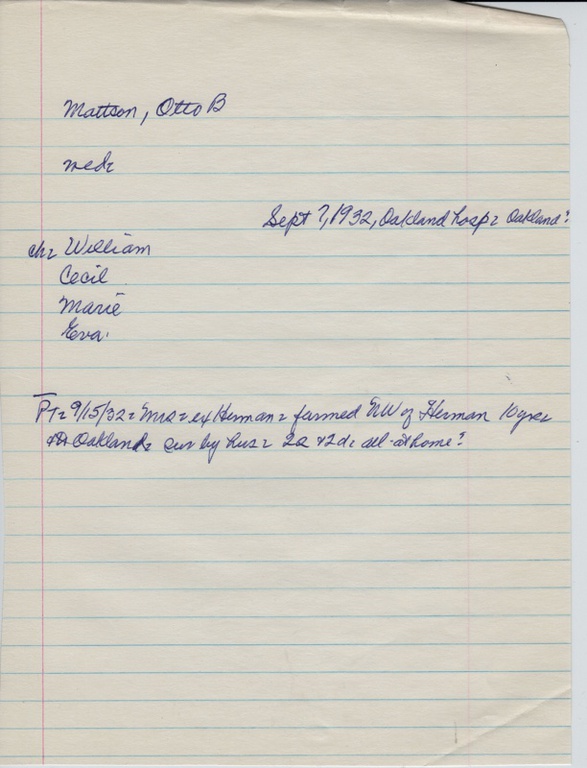 Mattson, Otto B
med=
Sept 7, 1932, Oakland hosp= Oakland?
ch= William
Cecil
Marie
Eva.
PT= 9/15/32= Mrs= ex Herman= farmed NW of Herman 10 yrs=
Oakland= sur by hus= 2s &2d= all-at home?